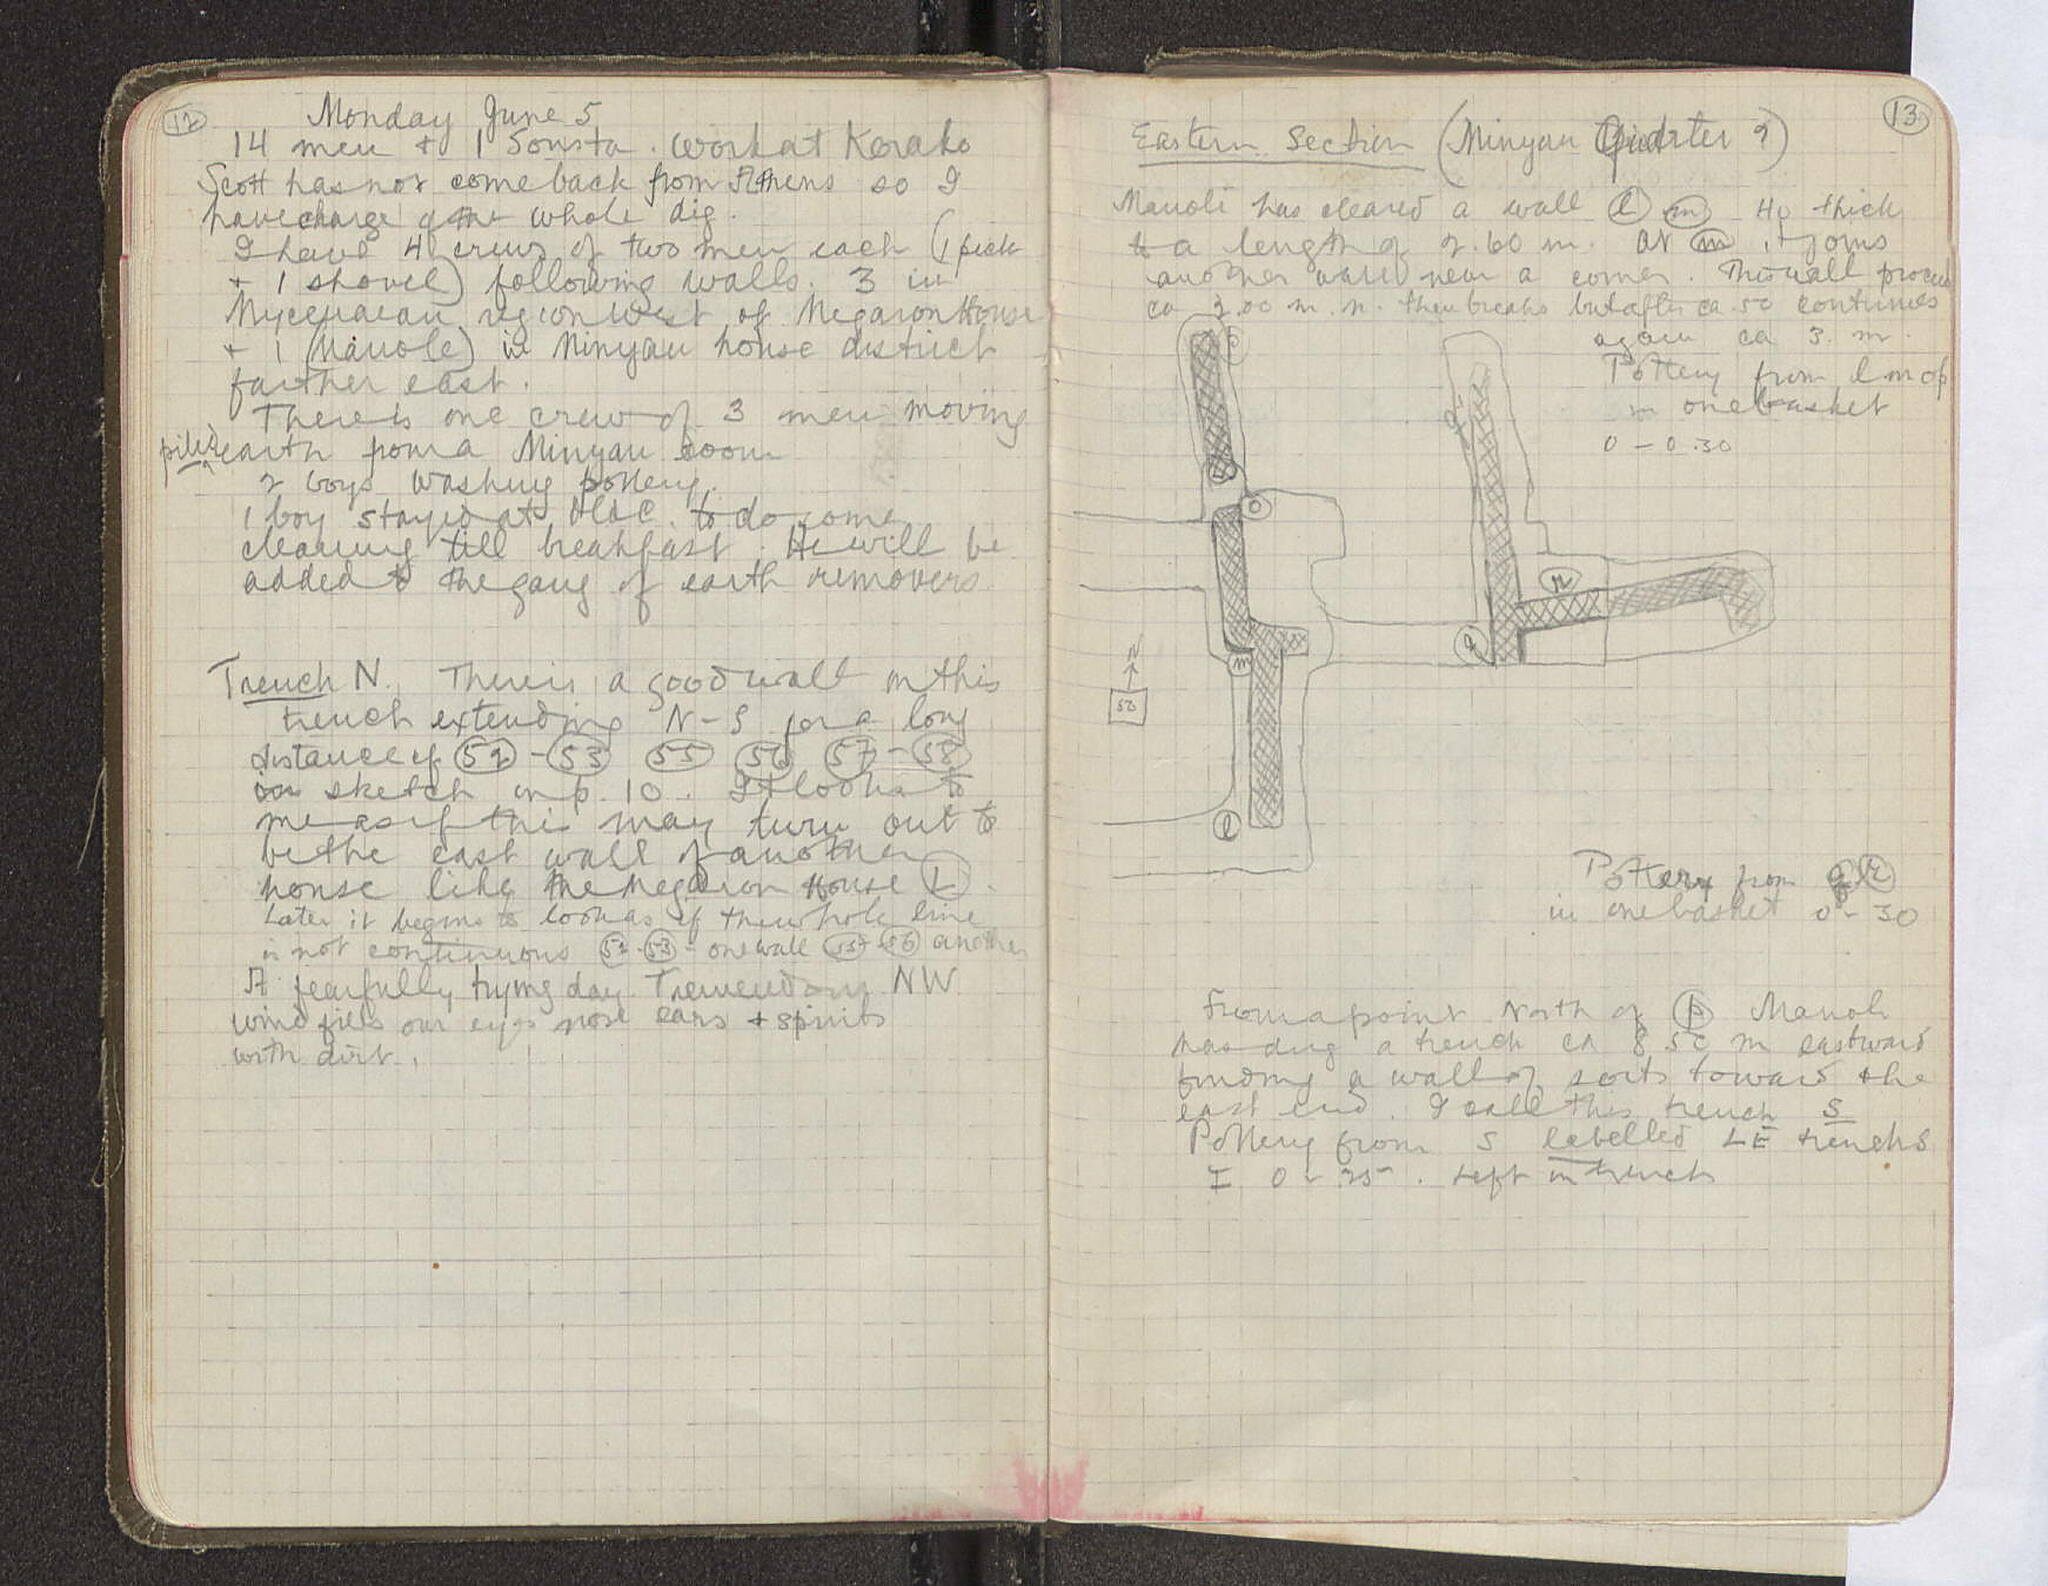 12
Monday June 5
14 men + 1 Sousta. Work at Korako
Scott has not come back from Athens so I
have charge of the whole dig.
I have 4 crews of two men each (1 pick
+ 1 shovel) following walls. 3 in
Mycenaean region west of Megaron House
+ 1 (Manole) in Minyan house district
farther east.
There is one crew of 3 men moving
piled earth from a Minyan room
2 boys washing pottery.
1 boy stayed at to do some
cleaning till breakfast. He will be
added to the gang of earth removers
Trench N. There is a good wall in this
trench extending N-S for a long
distance cf 52 - 53 55 56 57 - 58
in sketch on p. 10. It looks to
me as if this may turn out to
be the east wall of another
house like the Megaron House L.
Later it begins to look as if the whole line
is not continuous 52 - 53 - one wall 55 56 another
A fearfully trying day. Tremendous NW
wind fills our eyes nose ears + spirits
with dirt.
13
Eastern Section (Minyan Quarter ?)
Manoli has cleared a wall l m 40 thick
to a length of 2.60 m. At m it joins
another wall near a corner. This wall proceeds
ca 2.00 m. n. then breaks but after ca. 50 continues
again ca 3. m.
Pottery from l m o p
in one basket
0 - 0.30
o
r
q
m
N
52
l
Pottery from q r
in one basket 0 - 30
From a point North of p Manoli
has dug a trench ca 8.50 m eastward
finding a wall of sorts toward the
east end. I call this trench S
Pottery from S labelled LE trench S
I 0 - 25. Left in trench